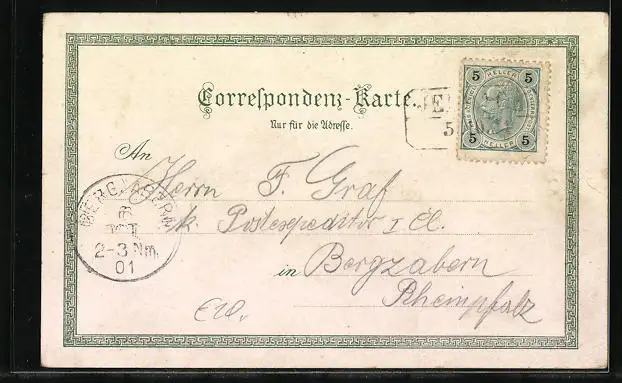 Correspondenz-Karte.
Nur für die Adresse.
5 HELLER 5
5 HELLER 5
An
Herrn F. Graf
k. Postexpeditor I Cl.
in Bergzabern
Rheinpfalz
6
OCT
2-3 Nm.
01